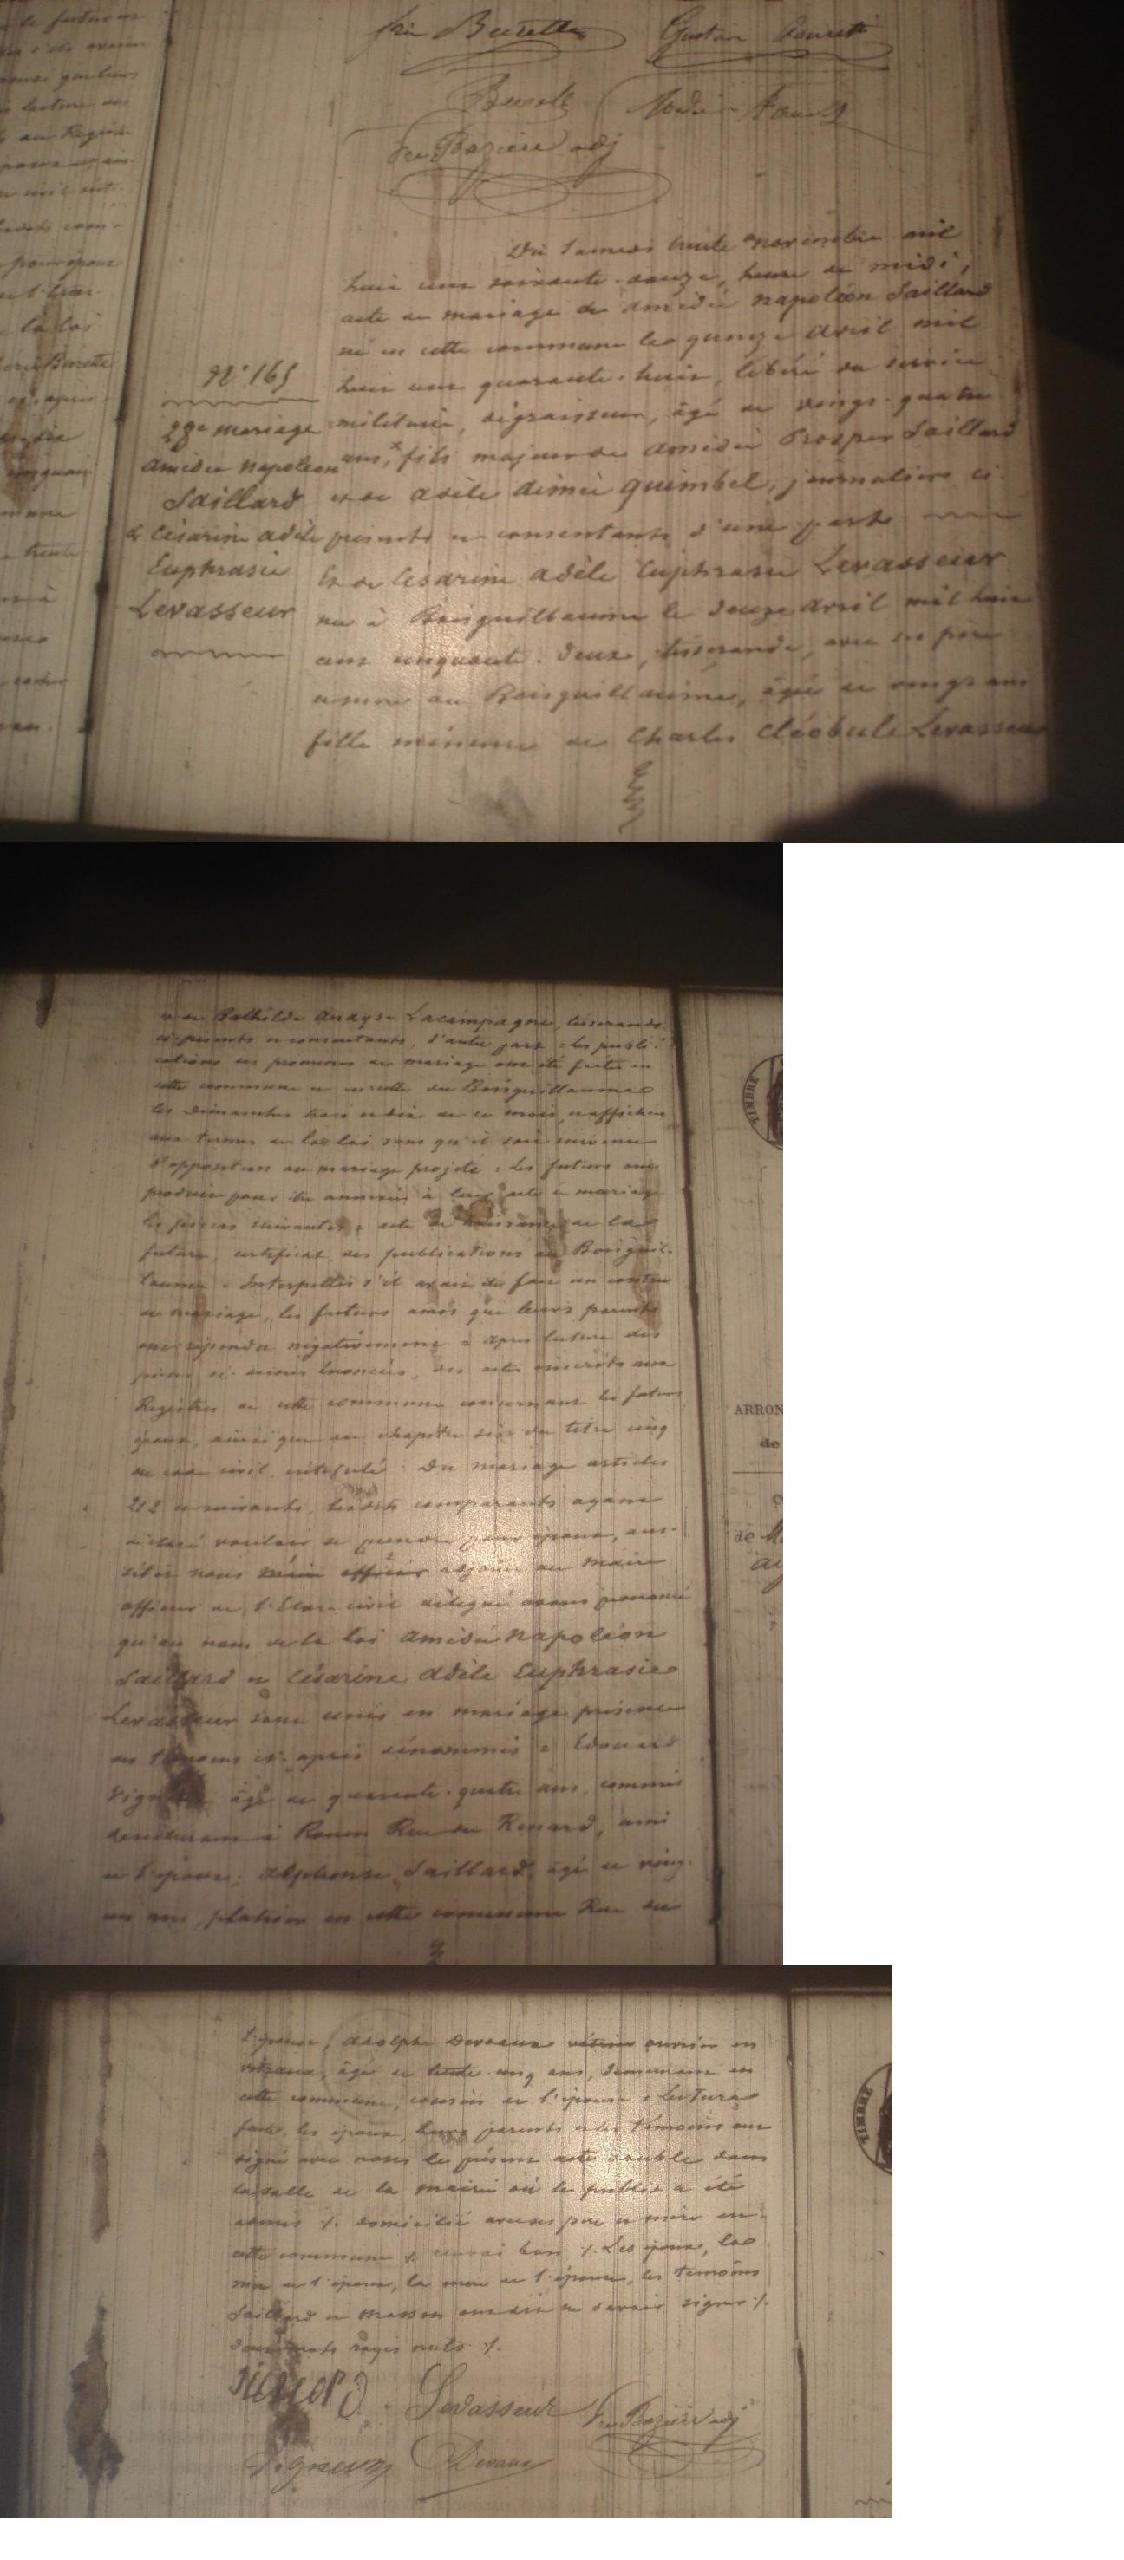 Burette Gustave Burette
Burette
Bazière adj
Du samedi trente novembre mil
huit cent soixante-douze, heure de midi,
acte de mariage de amédée napoléon Saillard
né en cette commune le quinze avril mil
huit cent quarante-huit, libéré du service
militaire, dégraisseur, âgé de vingt-quatre
ans, fils majeur de amédée Prosper Saillard
et de adèle aimée quimbel, journaliers ci-
présents et consentants d'une part
Et de Césarine adèle Euphrasie Levasseur
née à Boisguillaume le douze avril mil huit
cent cinquante-deux, tisserande, avec ses père
et mère au Boisguillaume, âgée de vingt ans
fille mineure de Charles Cléobule Levasseur
N° 165
28e mariage
amédée napoléon
Saillard
& Césarine adèle
Euphrasie
Levasseur
et de Bathilde Lacampagne, tisserands
ci-présents et consentants, d'autre part = les publi-
cations de promesse de mariage ont été faites en
cette commune et en celle du Boisguillaume
les dimanches trois et dix de ce mois, et affichées
aux termes de la loi sans qu'il soit survenu
d'opposition au mariage projeté = Les futurs ont
produit pour être annexés à leur acte de mariage
les pièces suivantes = acte de naissance de la
future, certificat des publications au Boisguil-
laume = Interpellés s'il avait été fait un contrat
de mariage, les futurs ainsi que leurs parents
ont répondu négativement = après lecture des
pièces ci-dessus énoncées, des actes inscrits aux
Registres de cette commune concernant les futurs
époux, ainsi que du chapitre six du titre cinq
du code civil, intitulé: Du mariage articles
212 et suivants, lesdits comparants ayant
déclaré vouloir se prendre pour époux, aus-
sitôt nous adjoint au maire
officier de l'Etat-civil délégué avons prononcé
qu'au nom de la loi amédée napoléon
Saillard et Césarine adèle Euphrasie
Levasseur sont unis en mariage présence
des témoins ci-après dénommés = Edouard
âgé de quarante-quatre ans, commis
demeurant à Rouen Rue du Renard, ami
de l'époux; alphonse Saillard, âgé de vingt-
un ans, plâtrier en cette commune Rue du
l'époux, adolphe ouvrier en
âgé de trente-cinq ans, demeurant en
cette commune, cousin de l'épouse = Lecture
faite, les époux, leurs parents et les témoins ont
signé avec nous le présent acte double dans
la salle de la mairie où le public a été
admis ./. domicilié avec ses père et mère en
cette commune ./. Les époux, la
mère de l'époux, la mère de l'épouse, les témoins
Saillard et ont dit ne savoir signer ./.
mots rayés nuls ./.
Levasseur Bazière adj